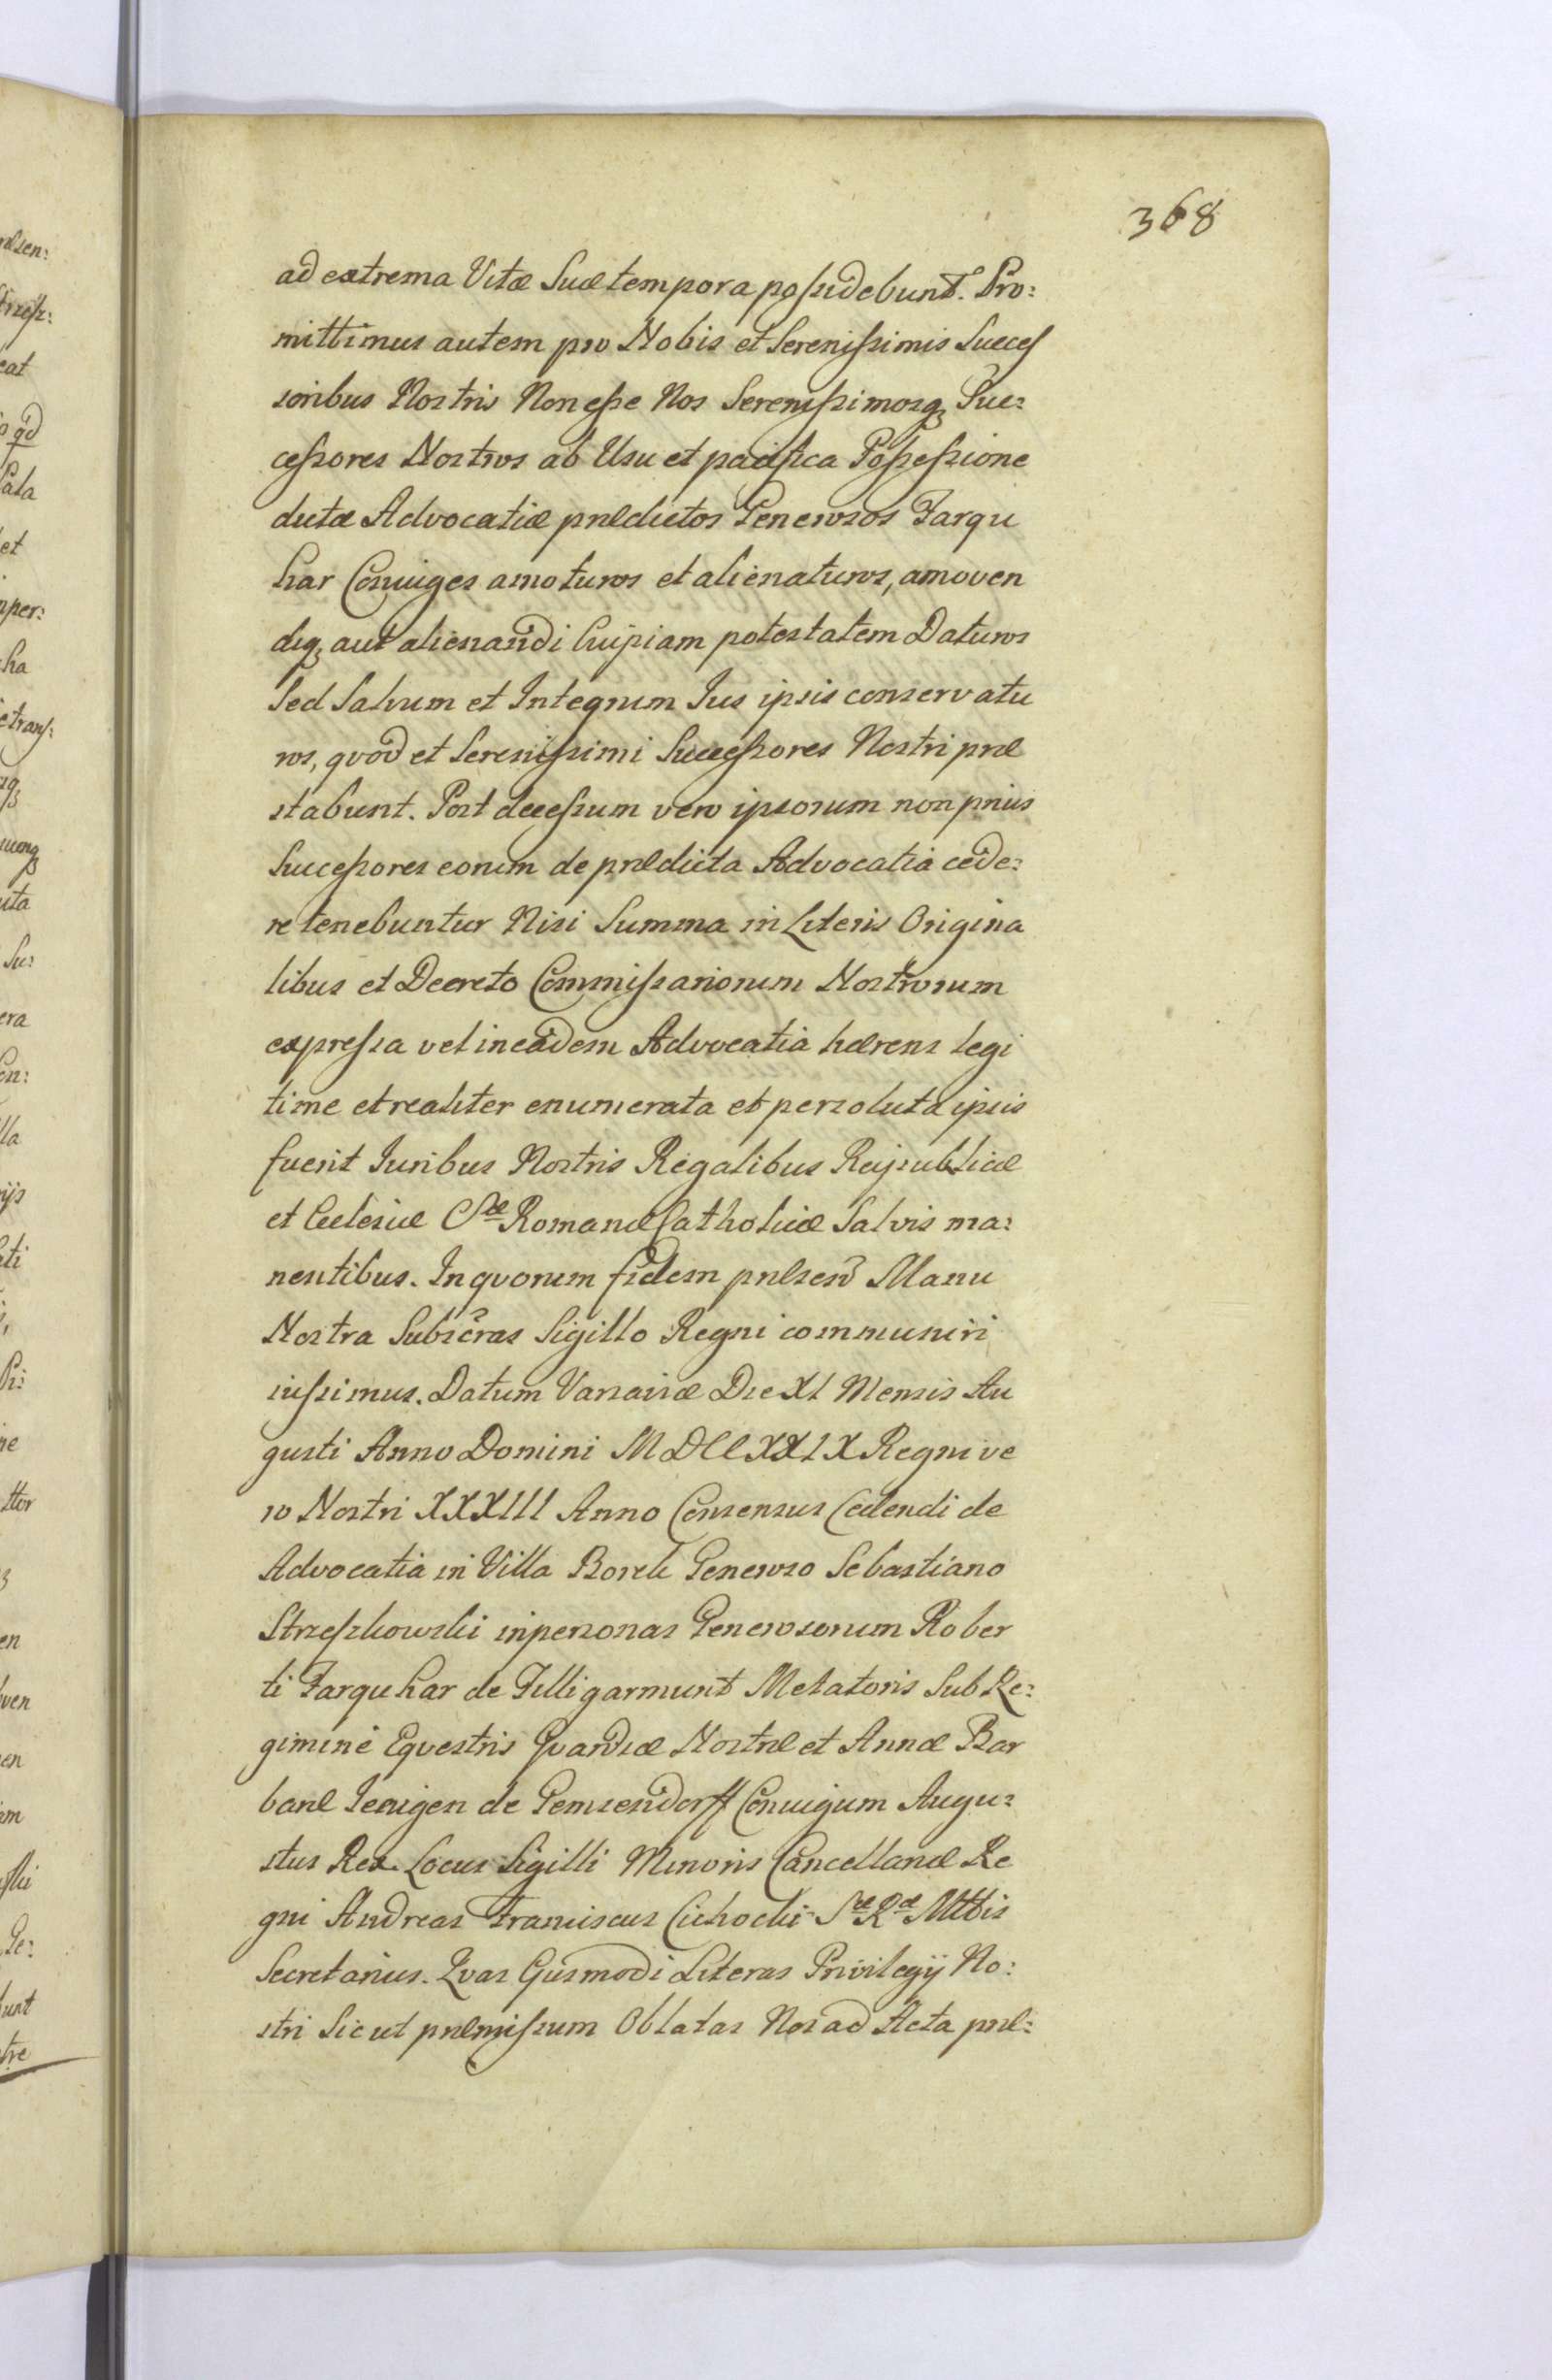 368
ad extrema Vitæ Suæ tempora poßidebunt. Pro:
mittimus autem pro Nobis et Sereniſsimis Succeſ
soribus Nostris Non eſse Nos Sereniſsimosq; Suc:
ceſsores Nostros ab Usu et pacifica Poſseſsione
dictæ Advocatiæ prædictos Generosos Farqu
har Coniuges amoturos et alienaturos, amoven
diq; aut alienandi Cuipiam potestatem Daturos
Sed Salvum et Integrum Ius ipsis conservatu
ros, qvod et Sereniſsimi Succeſsores Nostri præ
stabunt. Post deceſsum vero ipsorum non prius
Succeſsores eorum de prædicta Advocatia cede:
re tenebuntur Nisi Summa in Literis Origina
libus et Decreto Commiſsariorum Nostrorum
expreſsa vel in eadem Advocatia hærens legi
time et realiter enumerata et persoluta ipsis
fuerit Iuribus Nostris Regalibus Reipublicæ
et Ecclesiæ Sæ Romanæ Catholicæ Salvis ma:
nentibus. In qvorum fidem præsen̄ Manu
Nostra Subscr̄as Sigillo Regni communiri
iuſsimus. Datum Varsaviæ Die XI Mensis Au
gusti Anno Domini MDCCXXIX Regni ve
ro Nostri XXXIII Anno Consensus Cedendi de
Advocatia in Villa Borek Generoso Sebastiano
Strzeſzkowski in personas Generosorum Rober
ti Farquhar de Tilligarmunt Metatoris Sub Re:
gimine Eqvestris Gvardiæ Nostræ et Annæ Bar
baræ de Gemsendorff Coniugum Augu:
stus Rex Locus Sigilli Minoris Cancellariæ Re
gni Andreas Franciscus Cichocki Sæ Ræ Mttis
Secretarius. Qvas Eiusmodi Literas Privilegij No:
stri Sicut præmiſsum Oblatas Nos ad Acta præ: